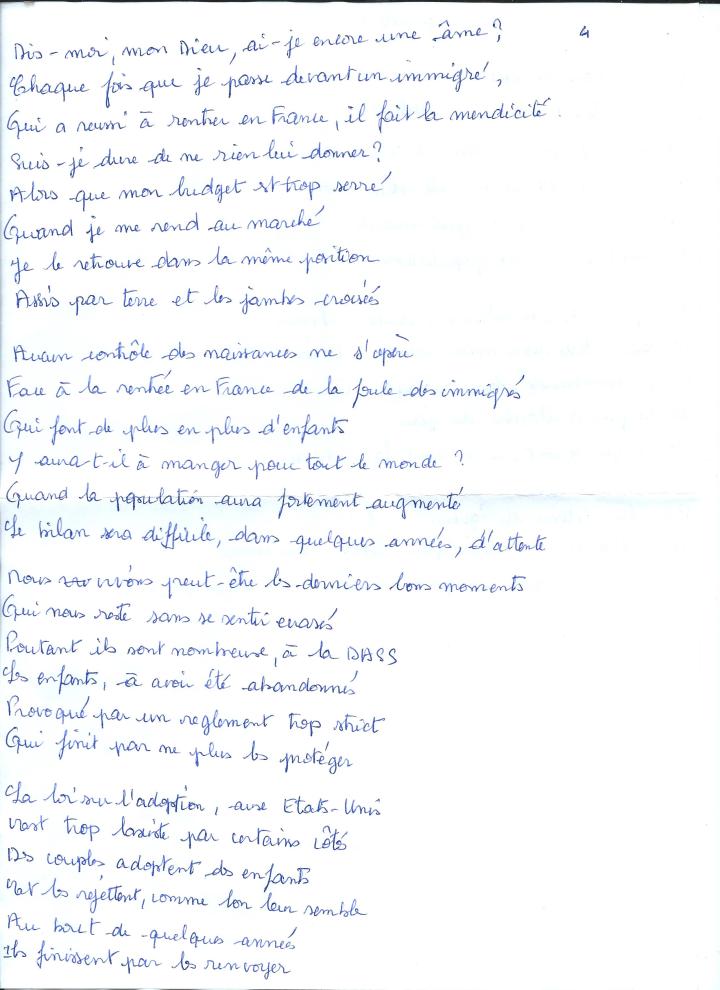 4
Dis-moi, mon Dieu, ai-je encore une âme?
Chaque fois que je passe devant un immigré,
Qui a reussi à rentrer en France, il fait la mendicité.
Suis-je dure de ne rien lui donner?
Alors que mon budget est trop serré
Quand je me rend au marché
Je le retrouve dans la même position
Assis par terre et les jambes croisées
Aucun contrôle des naissances ne s'opère
Face à la rentrée en France de la foule des immigrés
Qui font de plus en plus d'enfants
Y aura-t-il à manger pour tout le monde ?
Quand la population aura fortement augmenté
Le bilan sera difficile, dans quelques années, d'attente
Nous vivons peut-être les derniers bons moments
Qui nous reste sans se sentir écrasés
Pourtant ils sont nombreuse, à la DASS
Les enfants, à avoir été abandonnés
Provoqué par un reglement trop strict
Qui finit par ne plus les protéger
La loi sur l'adoption, aux Etats-Unis
est trop laxiste par certains côtés
Des couples adoptent des enfants
et les rejettent, comme bon leur semble
Au bout de quelques années
Ils finissent par les renvoyer